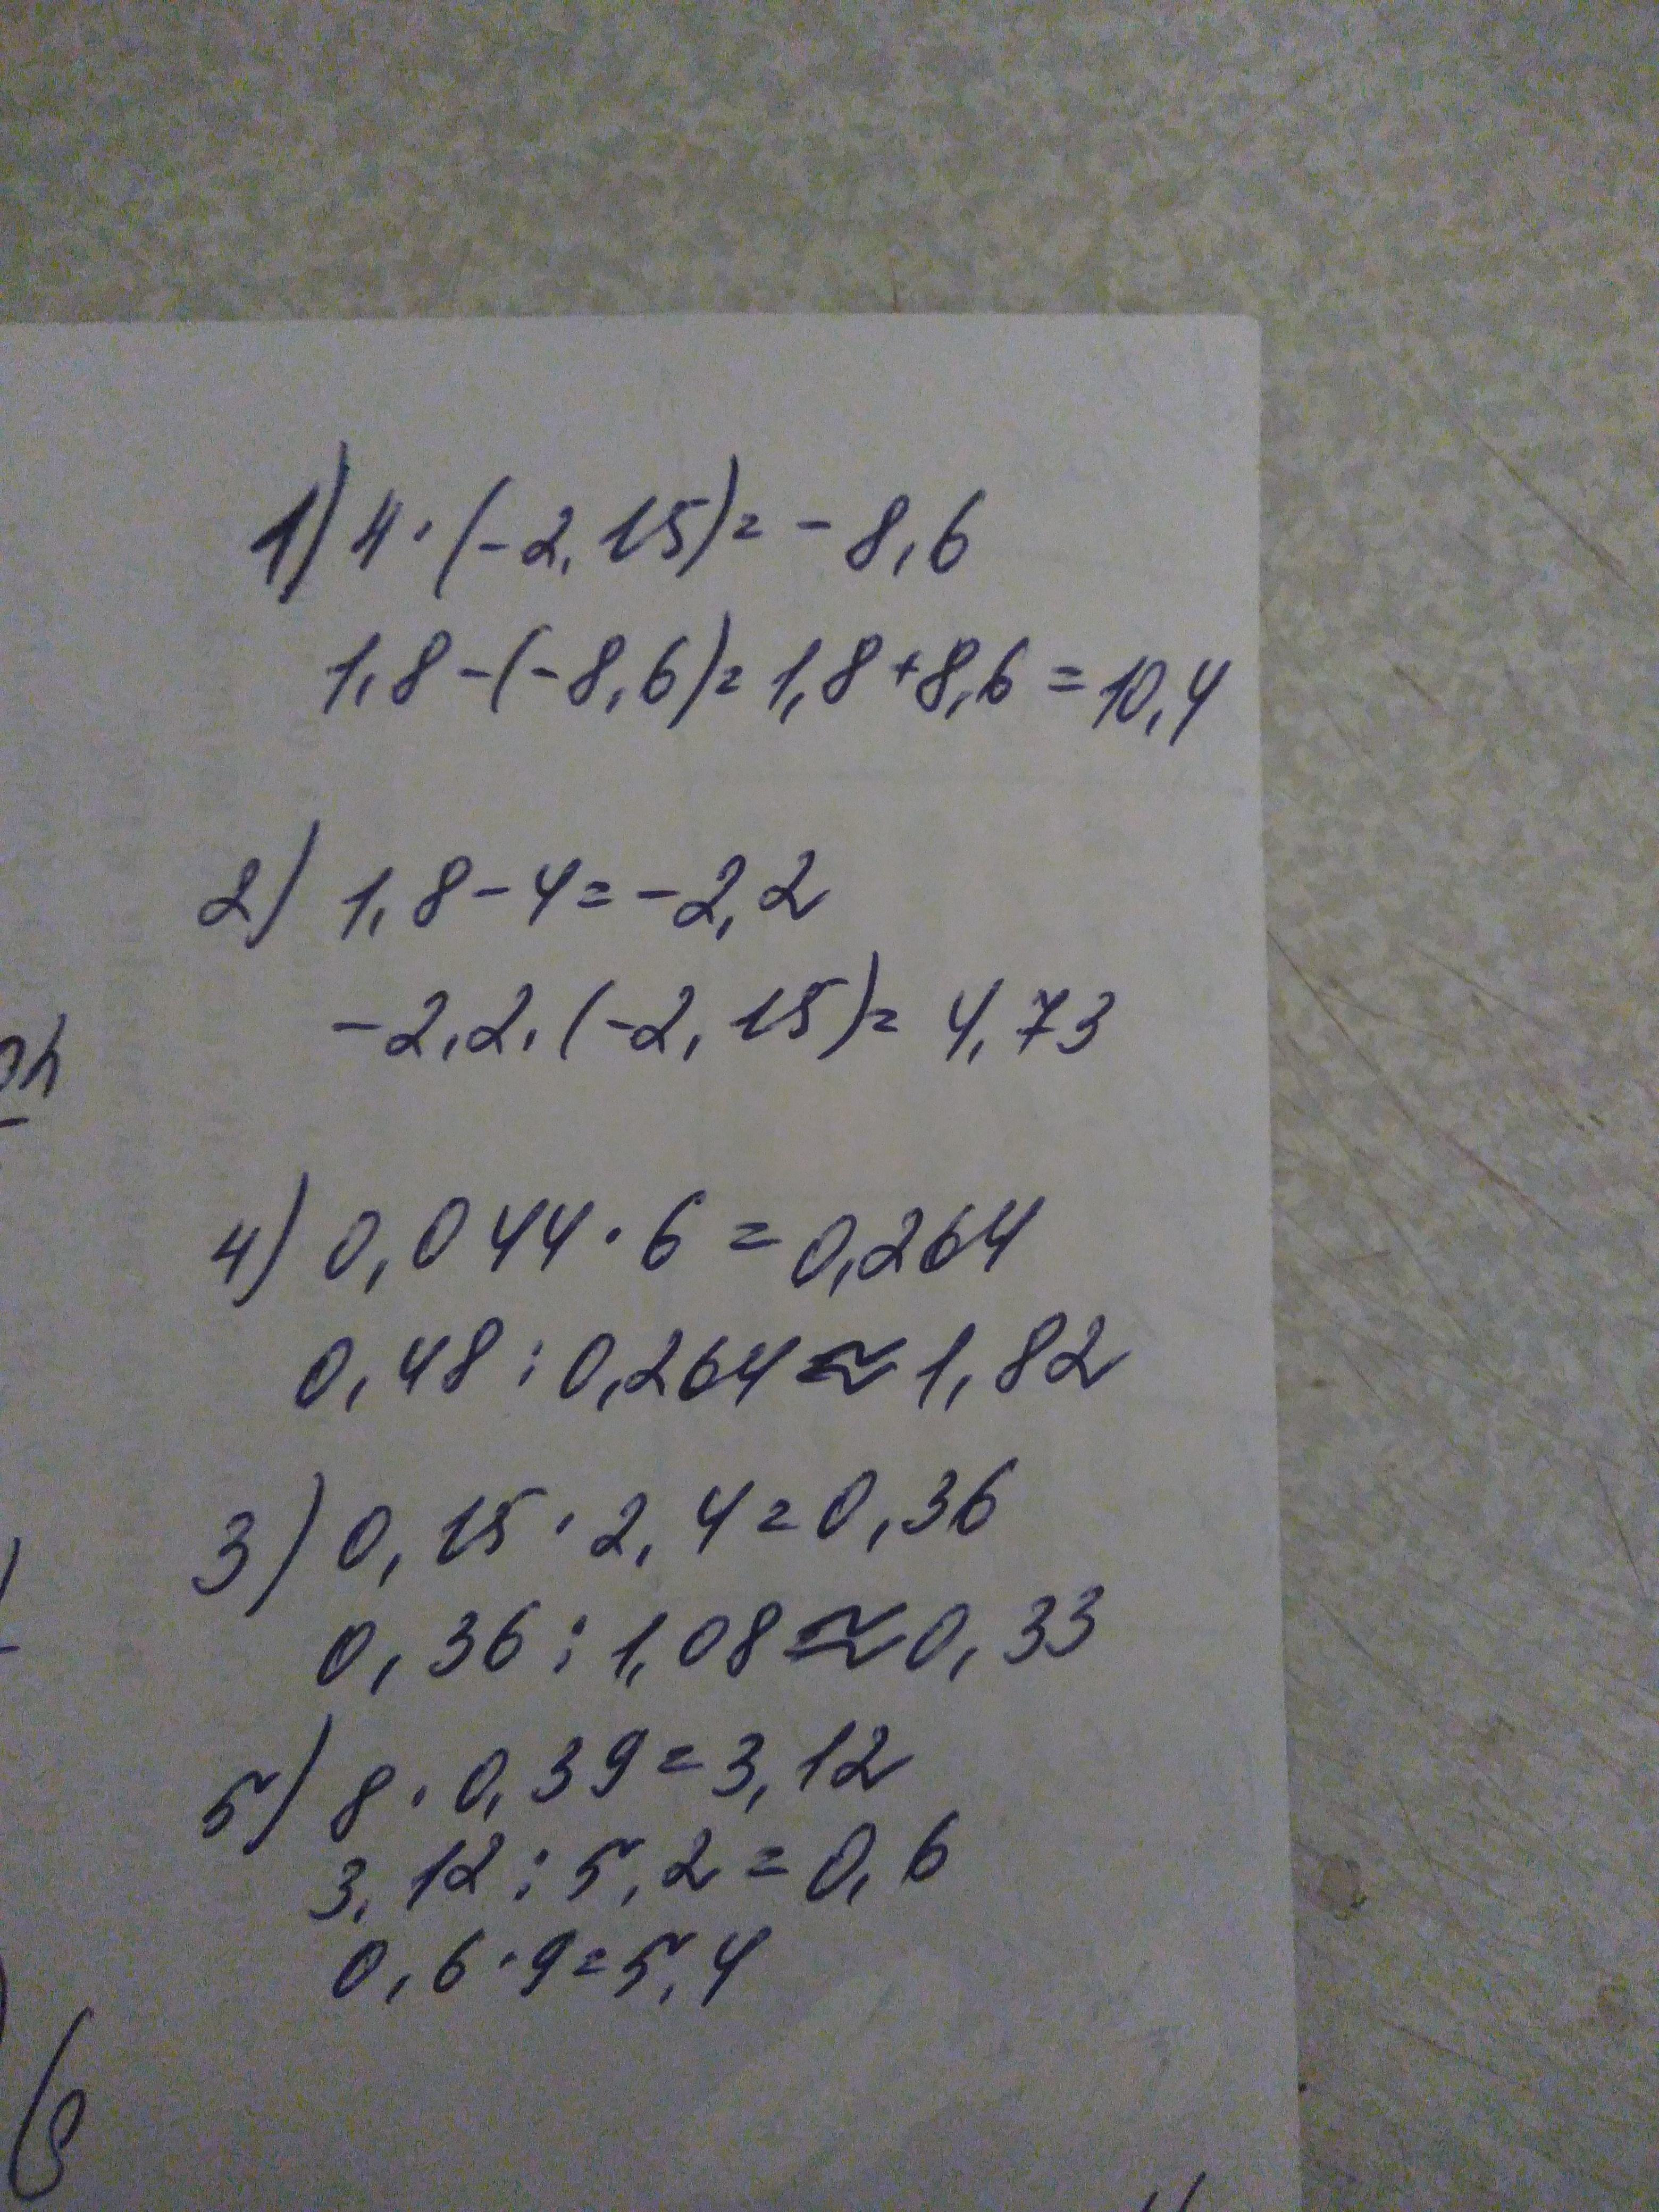 1) 4·(-2,15)=-8,6
1,8-(-8,6)=1,8+8,6=10,4
2) 1,8-4=-2,2
-2,2·(-2,15)=4,73
4) 0,044·6=0,264
0,48:0,264≈1,82
3) 0,15·2,4=0,36
0,36:1,08≈0,33
5) 8·0,39=3,12
3,12:5,2=0,6
0,6·9=5,4